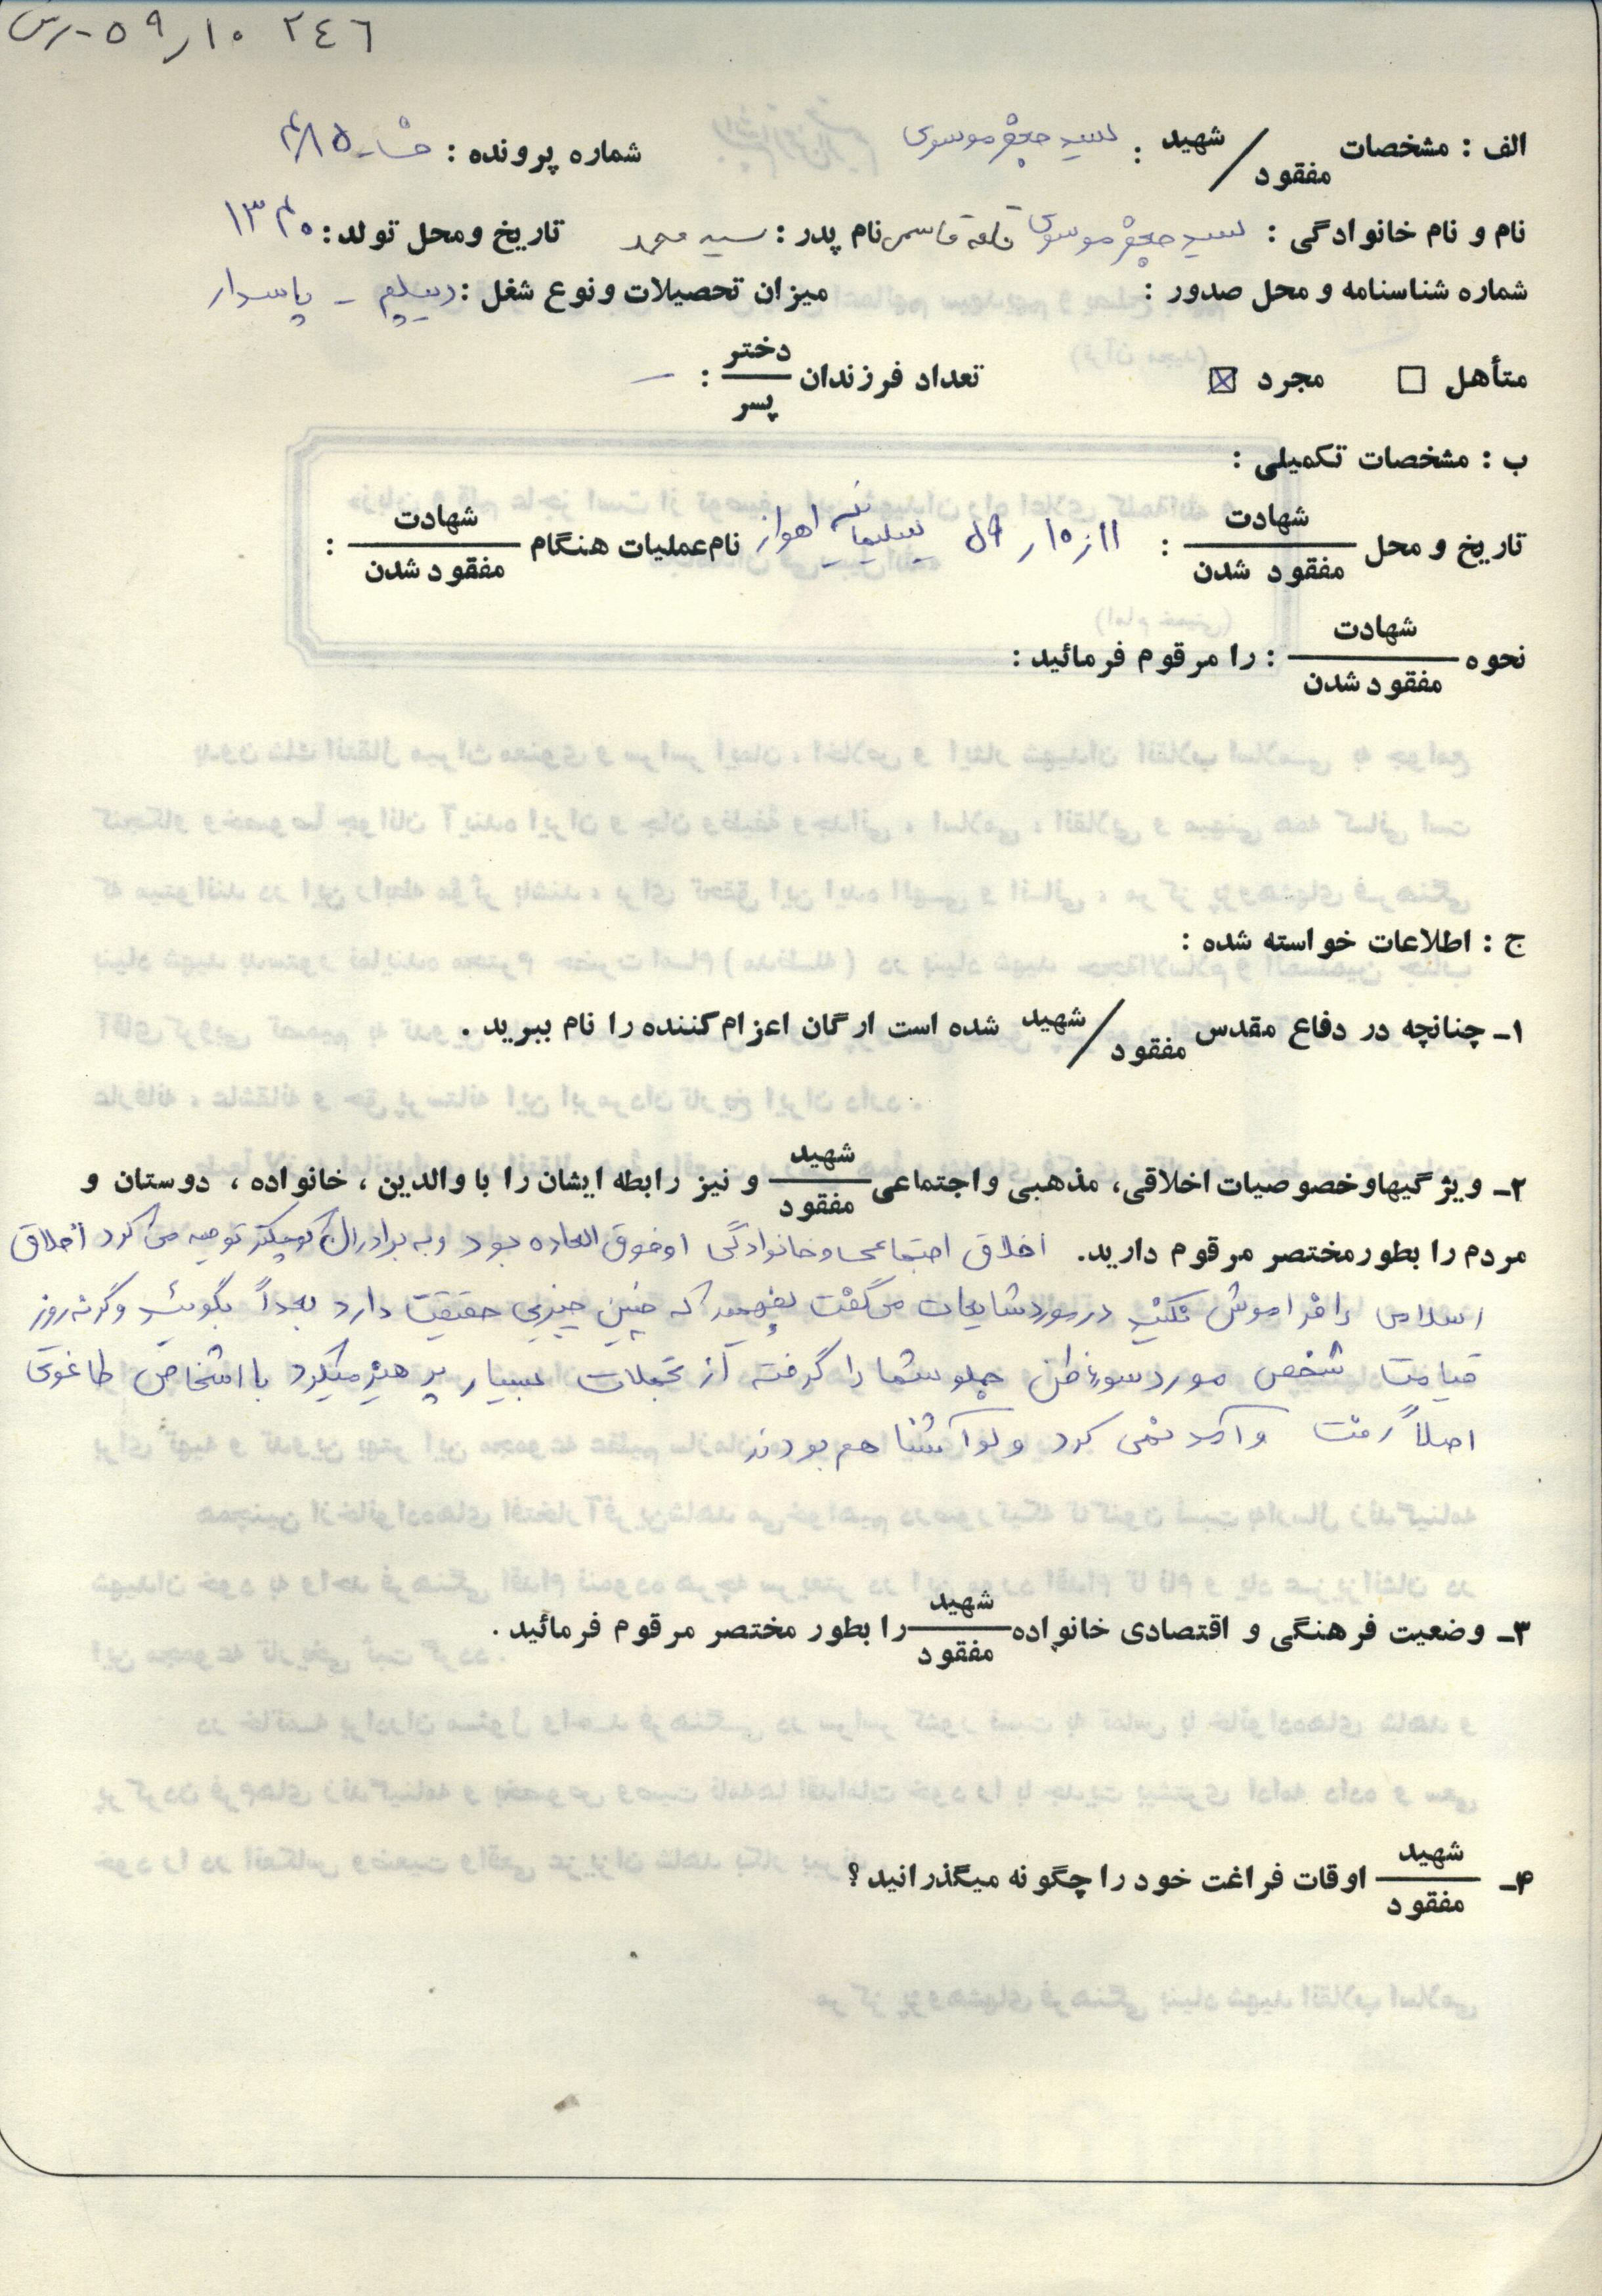 ۲۴۶ ۱۰ر۵۹-رس
الف : مشخصات شهید / مفقود : سید جعفر موسوی شماره پرونده :
نام و نام خانوادگی : سید جعفر موسوی قلعه قاسمی نام پدر : سید محمد تاریخ ومحل تولد : ۱۳۴۰
شماره شناسنامه و محل صدور : میزان تحصیلات ونوع شغل : دیپلم - پاسدار
متأهل □ مجرد ☒ تعداد فرزندان دختر / پسر : -
ب : مشخصات تکمیلی :
تاریخ و محل شهادت / مفقود شدن : ۱۱ر۱۰ر۵۹ سلیمانیه اهواز نام عملیات هنگام شهادت / مفقود شدن :
نحوه شهادت / مفقود شدن : را مرقوم فرمائید :
ج : اطلاعات خواسته شده :
۱ـ چنانچه در دفاع مقدس شهید / مفقود شده است ارگان اعزام کننده را نام ببرید .
۲ـ ویژگیهاوخصوصیات اخلاقی، مذهبی واجتماعی شهید / مفقود و نیز رابطه ایشان را با والدین ، خانواده ، دوستان و
مردم را بطورمختصر مرقوم دارید. اخلاق اجتماعی وخانوادگی او فوق العاده بود و به برادران کوچکتر توصیه می کرد اخلاق
اسلامی را فراموش نکنید در مورد شایعات می گفت بفهمید که چنین چیزی حقیقت دارد بعداً بگوئید وگرنه روز
قیامت شخص مورد سوءظن جلو شما را گرفته از تجملات بسیار پرهیز میکرد با اشخاص طاغوتی
اصلاً رفت و آمد نمی کرد ولو آشنا هم بودند
۳ـ وضعیت فرهنگی و اقتصادی خانواده شهید / مفقود را بطور مختصر مرقوم فرمائید .
۴ـ شهید / مفقود اوقات فراغت خود را چگونه میگذرانید ؟